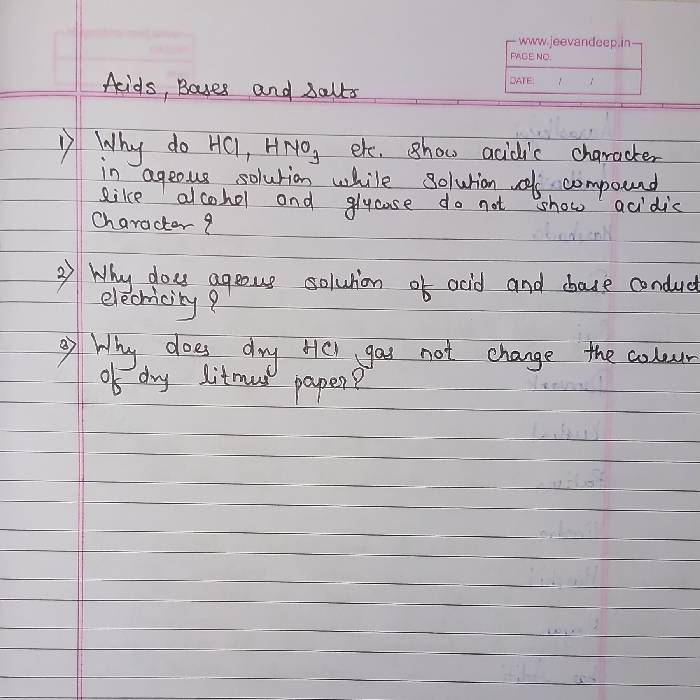 www.jeevandeep.in
PAGE NO.
DATE: / /
Acids, Bases and Salts
1) Why do HCl, HNO3 etc. show acidic character
in aqeous solution while solution of compound
like alcohol and glucose do not show acidic
Character?
2) Why does aqeous solution of acid and base conduct
electricity?
3) Why does dry HCl gas not change the colour
of dry litmus paper?